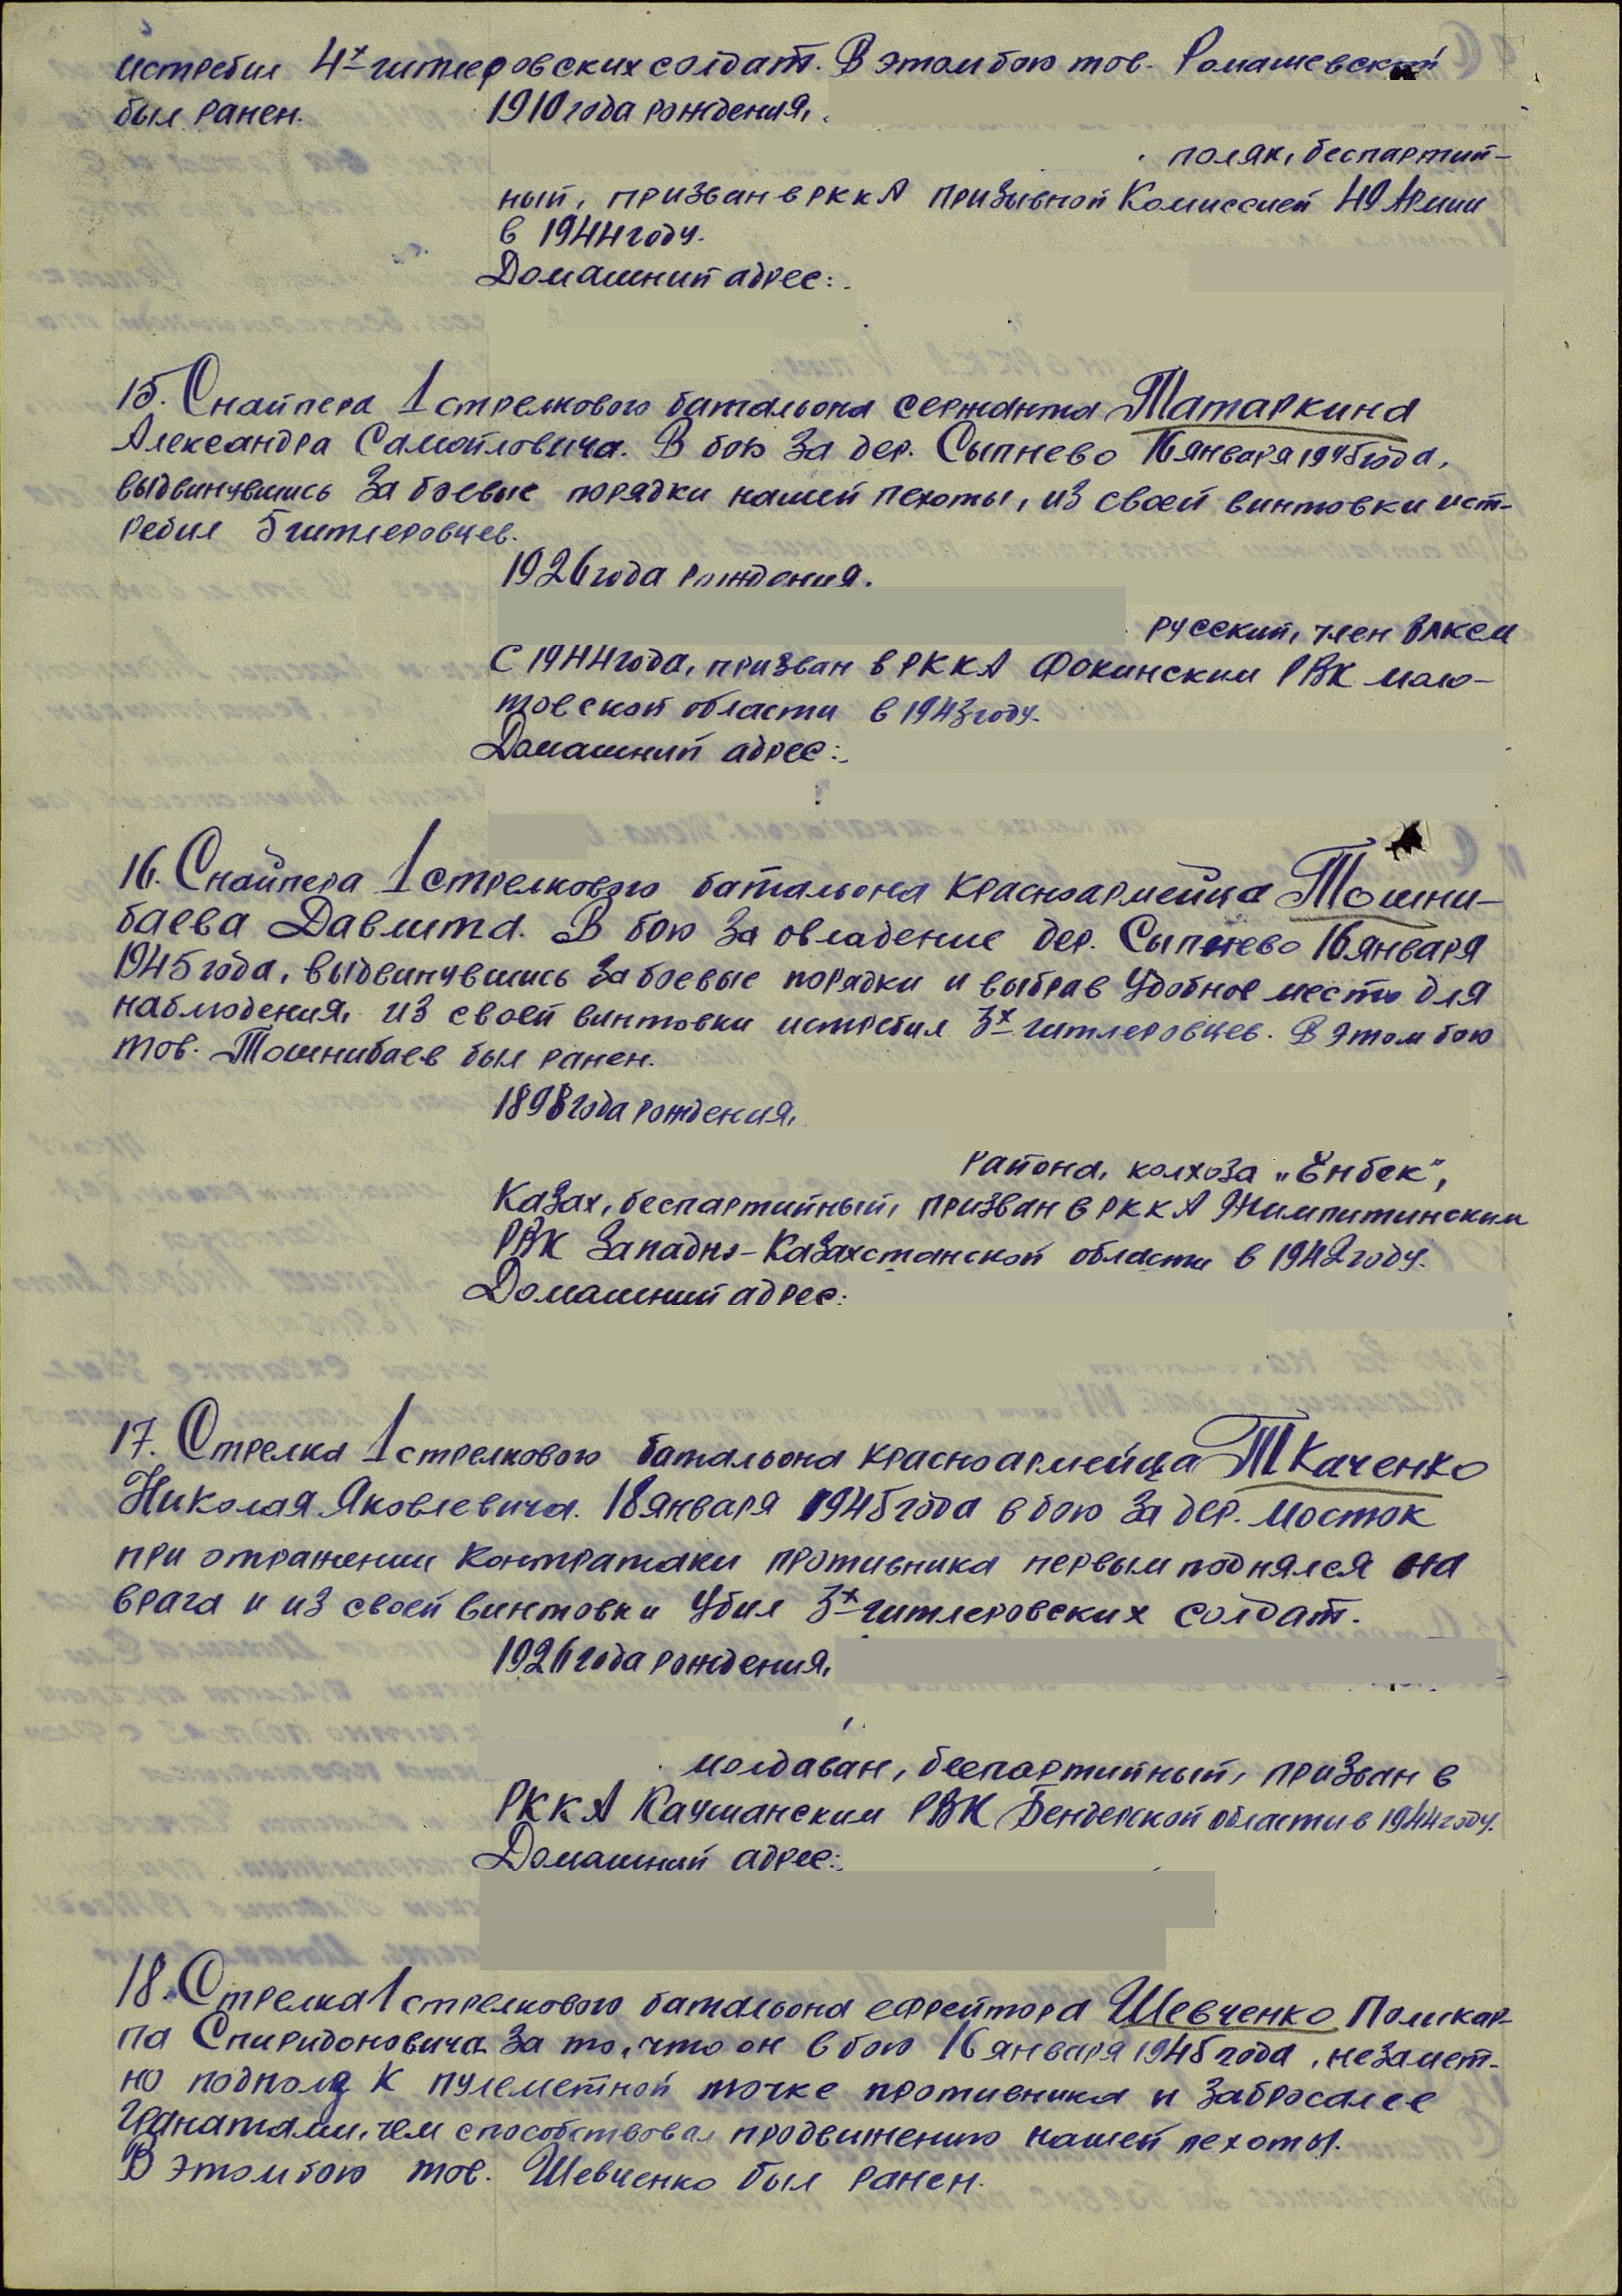 истребил 4х гитлеровских солдат. В этом бою тов. Ромашевский
был ранен. 1910 года рождения,
поляк, беспартий-
ный, призван в РККА призывной Комиссией 49 Армии
в 1944 году.
Домашний адрес:
15. Снайпера 1 стрелкового батальона сержанта Татаркина
Александра Самойловича. В бою за дер. Сыпнево 16 января 1945 года,
выдвинувшись за боевые порядки нашей пехоты, из своей винтовки ист-
ребил 5 гитлеровцев.
1926 года рождения.
русский, член ВЛКСМ
с 1944 года, призван в РККА Фокинским РВК Моло-
товской области в 1943 году.
Домашний адрес:
16. Снайпера 1 стрелкового батальона красноармейца Тошни-
баева Давлита. В бою за овладение дер. Сыпнево 16 января
1945 года, выдвинувшись за боевые порядки и выбрав удобное место для
наблюдения, из своей винтовки истребил 3х гитлеровцев. В этом бою
тов. Тошнибаев был ранен.
1898 года рождения,
района, колхоза „Енбек",
Казах, беспартийный, призван в РККА Жимпитинским
РВК Западно-Казахстанской области в 1942 году.
Домашний адрес:
17. Стрелка 1 стрелкового батальона красноармейца Ткаченко
Николая Яковлевича. 18 января 1945 года в бою за дер. Мосток
при отражении контратаки противника первым поднялся на
врага и из своей винтовки убил 3х гитлеровских солдат.
1926 года рождения,
молдаван, беспартийный, призван в
РККА Каушанским РВК Бендерской области в 1944 году.
Домашний адрес:
18. Стрелка 1 стрелкового батальона ефрейтора Шевченко Поликар-
па Спиридоновича за то, что он в бою 16 января 1945 года, незамет-
но подполз к пулеметной точке противника и забросал ее
гранатами, чем способствовал продвижению нашей пехоты.
В этом бою тов. Шевченко был ранен.